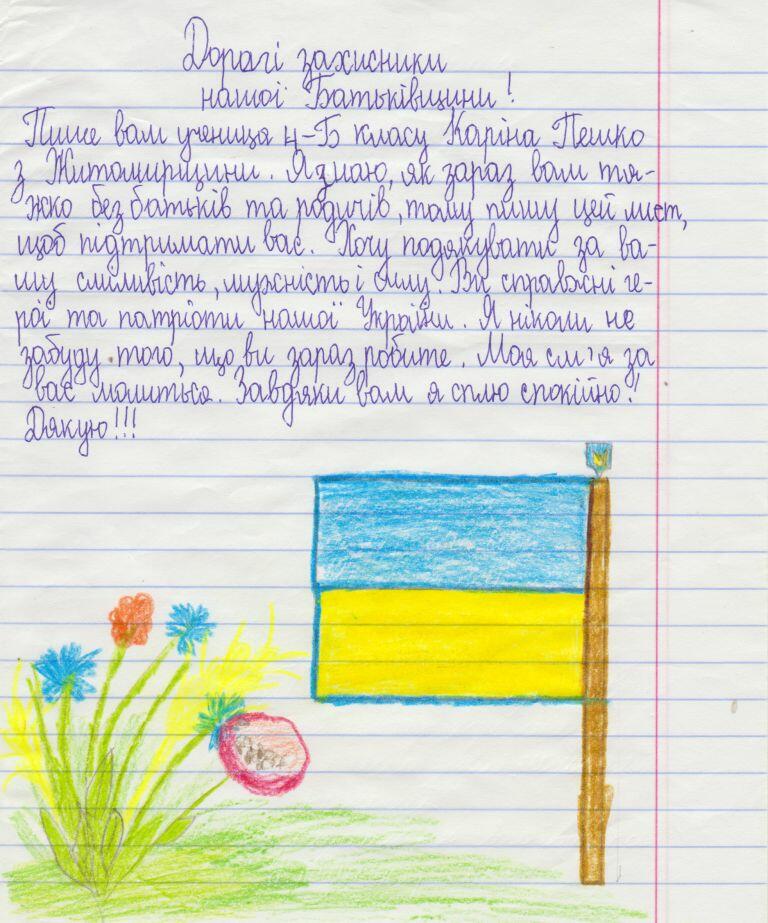 Дорогі захисники
нашої Батьківщини!
Пише вам учениця 4-Б класу Каріна Пешко
з Житомирщини. Я знаю, як зараз вам тя-
жко без батьків та родичів, тому пишу цей лист,
щоб підтримати вас. Хочу подякувати за ва-
шу сміливість, мужність і силу. Ви справжні ге-
рої та патріоти нашої України. Я ніколи не
забуду того, що ви зараз робите. Моя сім'я за
вас молиться. Завдяки вам я сплю спокійно!
Дякую!!!